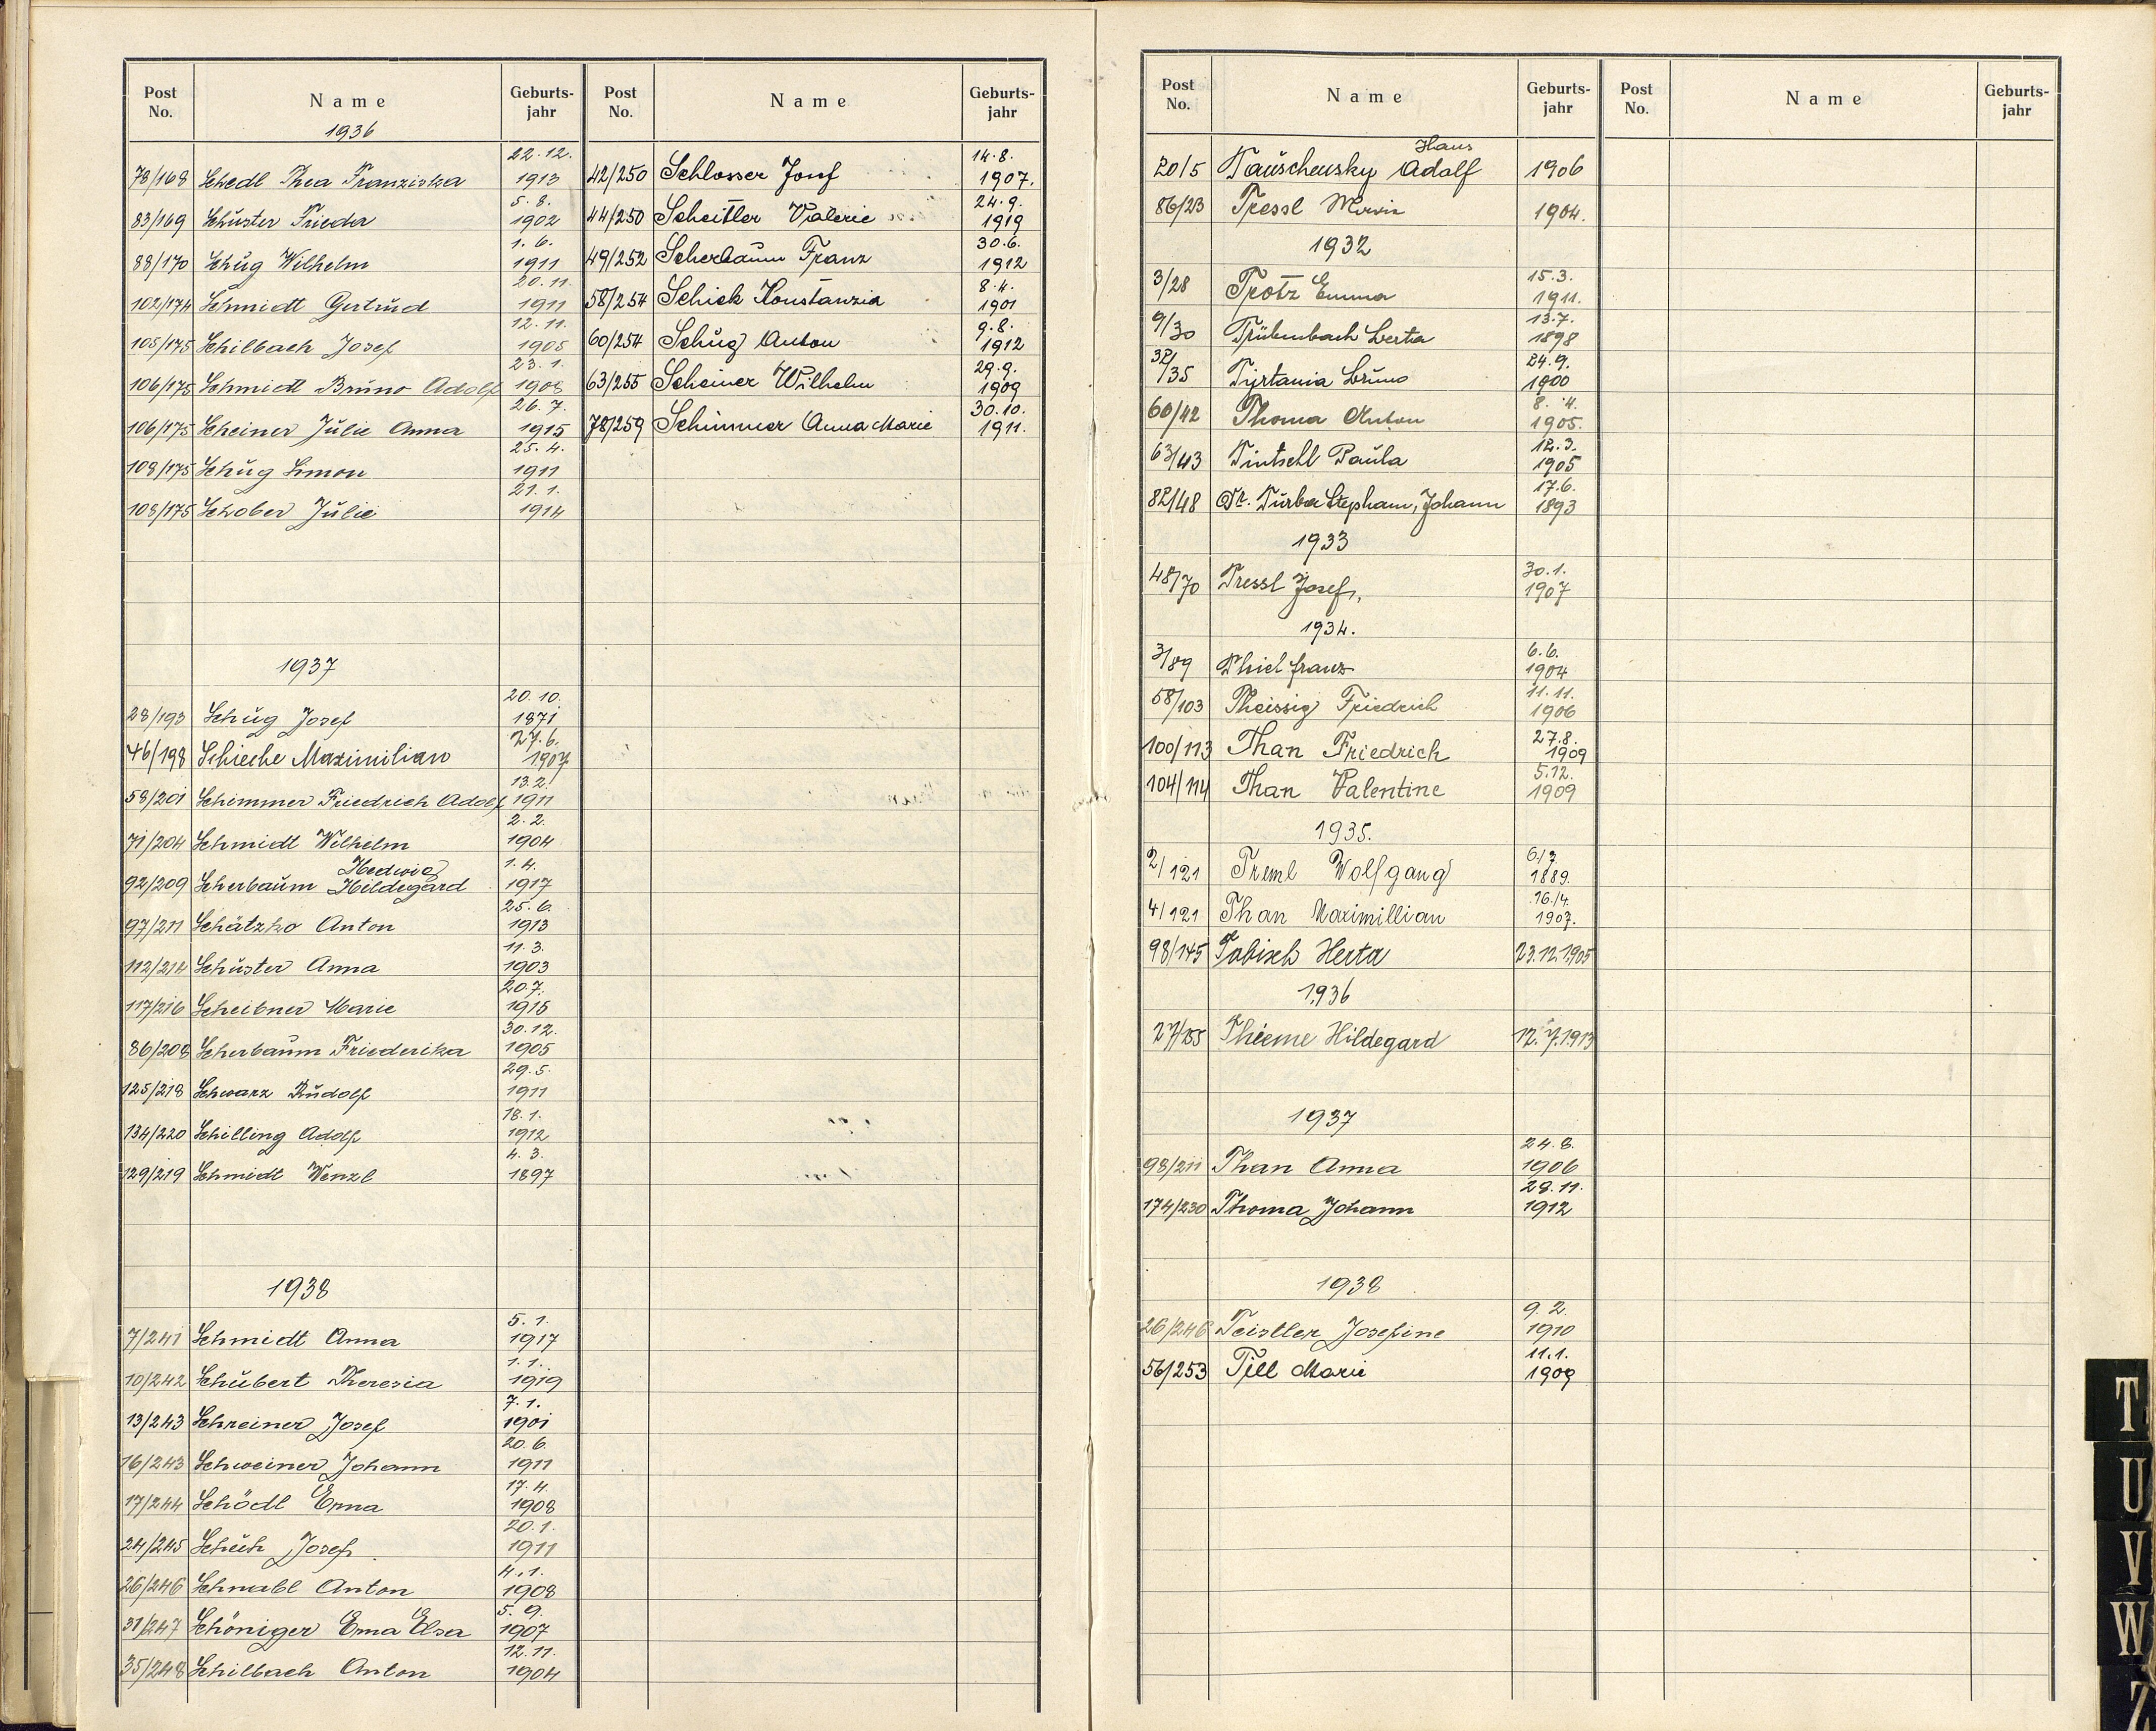 Post No. Name Geburts-jahr Post No. Name Geburts-jahr
1936
78/168 Schedl Thea Franziska 22.12. 1913
83/169 Schuster Frieda 5.8. 1902
88/170 Schug Wilhelm 1.6. 1911
102/174 Schmidt Gertrud 20.11. 1911
105/175 Schilbach Josef 12.11. 1905
106/175 Schmidt Bruno Adolf 23.1. 1908
106/175 Scheiner Julie Anna 26.7. 1915
108/175 Schug Simon 25.4. 1911
108/175 Schober Julie 21.1. 1914
1937
28/193 Schug Josef 20.10. 1871
46/198 Schieche Maximilian 27.6. 1907
58/201 Schimmer Friedrich Adolf 13.2. 1911
71/204 Schmidt Wilhelm 2.2. 1904
92/209 Scherbaum Hedwig Hildegard 1.4. 1917
97/211 Schätzko Anton 25.6. 1913
112/214 Schuster Anna 11.3. 1903
117/216 Scheibner Marie 20.7. 1915
86/208 Scherbaum Friederika 30.12. 1905
125/218 Schwarz Rudolf 29.5. 1911
134/220 Schilling Adolf 18.1. 1912
129/219 Schmidt Wenzl 4.3. 1897
1938
7/241 Schmidt Anna 5.1. 1917
10/242 Schubert Theresia 1.1. 1919
13/243 Schreiner Josef 7.1. 1901
16/243 Schweiner Johann 20.6. 1911
17/244 Schödl Erna 17.4. 1908
24/245 Schuh Josef 20.1. 1911
26/246 Schnabl Anton 4.1. 1908
31/247 Schöniger Erna Elsa 5.9. 1907
35/248 Schilbach Anton 12.11. 1904
42/250 Schlosser Josef 14.8. 1907.
44/250 Scheitler Valerie 24.9. 1919
49/252 Scherbaum Franz 30.6. 1912
58/254 Schick Konstanzia 8.4. 1901
60/254 Schug Anton 9.8. 1912
63/255 Scheiner Wilhelm 29.9. 1909
78/259 Schimmer Anna Marie 30.10. 1911.
Post No. Name Geburts-jahr Post No. Name Geburts-jahr
20/5 Tauschensky Hans Adolf 1906
86/23 Tressl 1904.
1932
3/28 Trotz Emma 15.3. 1911.
9/30 Trübenbach Berta 13.7. 1898
32/35 Tyrtania Bruno 24.9. 1900
60/42 Thoma Anton 8.4. 1905.
63/43 Tintschl Paula 12.3. 1905
82/48 Dr. Turba Stephan, Johann 17.6. 1893
1933
48/70 Tressl Josef, 30.1. 1907
1934.
3/89 Thiel franz 6.6. 1904
58/103 Theissig Friedrich 11.11. 1906
100/113 Than Friedrich 27.8. 1909
104/114 Than Valentine 5.12. 1909
1935.
2/121 Treml Wolfgang 6./7. 1889.
4/121 Than Maximillian 16./4. 1907.
98/145 Tobisch Herta 23.12.1905
1936
27/155 Thieme Hildegard 12.7.1913
1937
98/211 Than Anna 24.8. 1906
174/230 Thoma Johann 28.11. 1912
1938
26/246 Teistler Josefine 9.2. 1910
56/253 Till Marie 11.1. 1909
T
U
V
W
Z